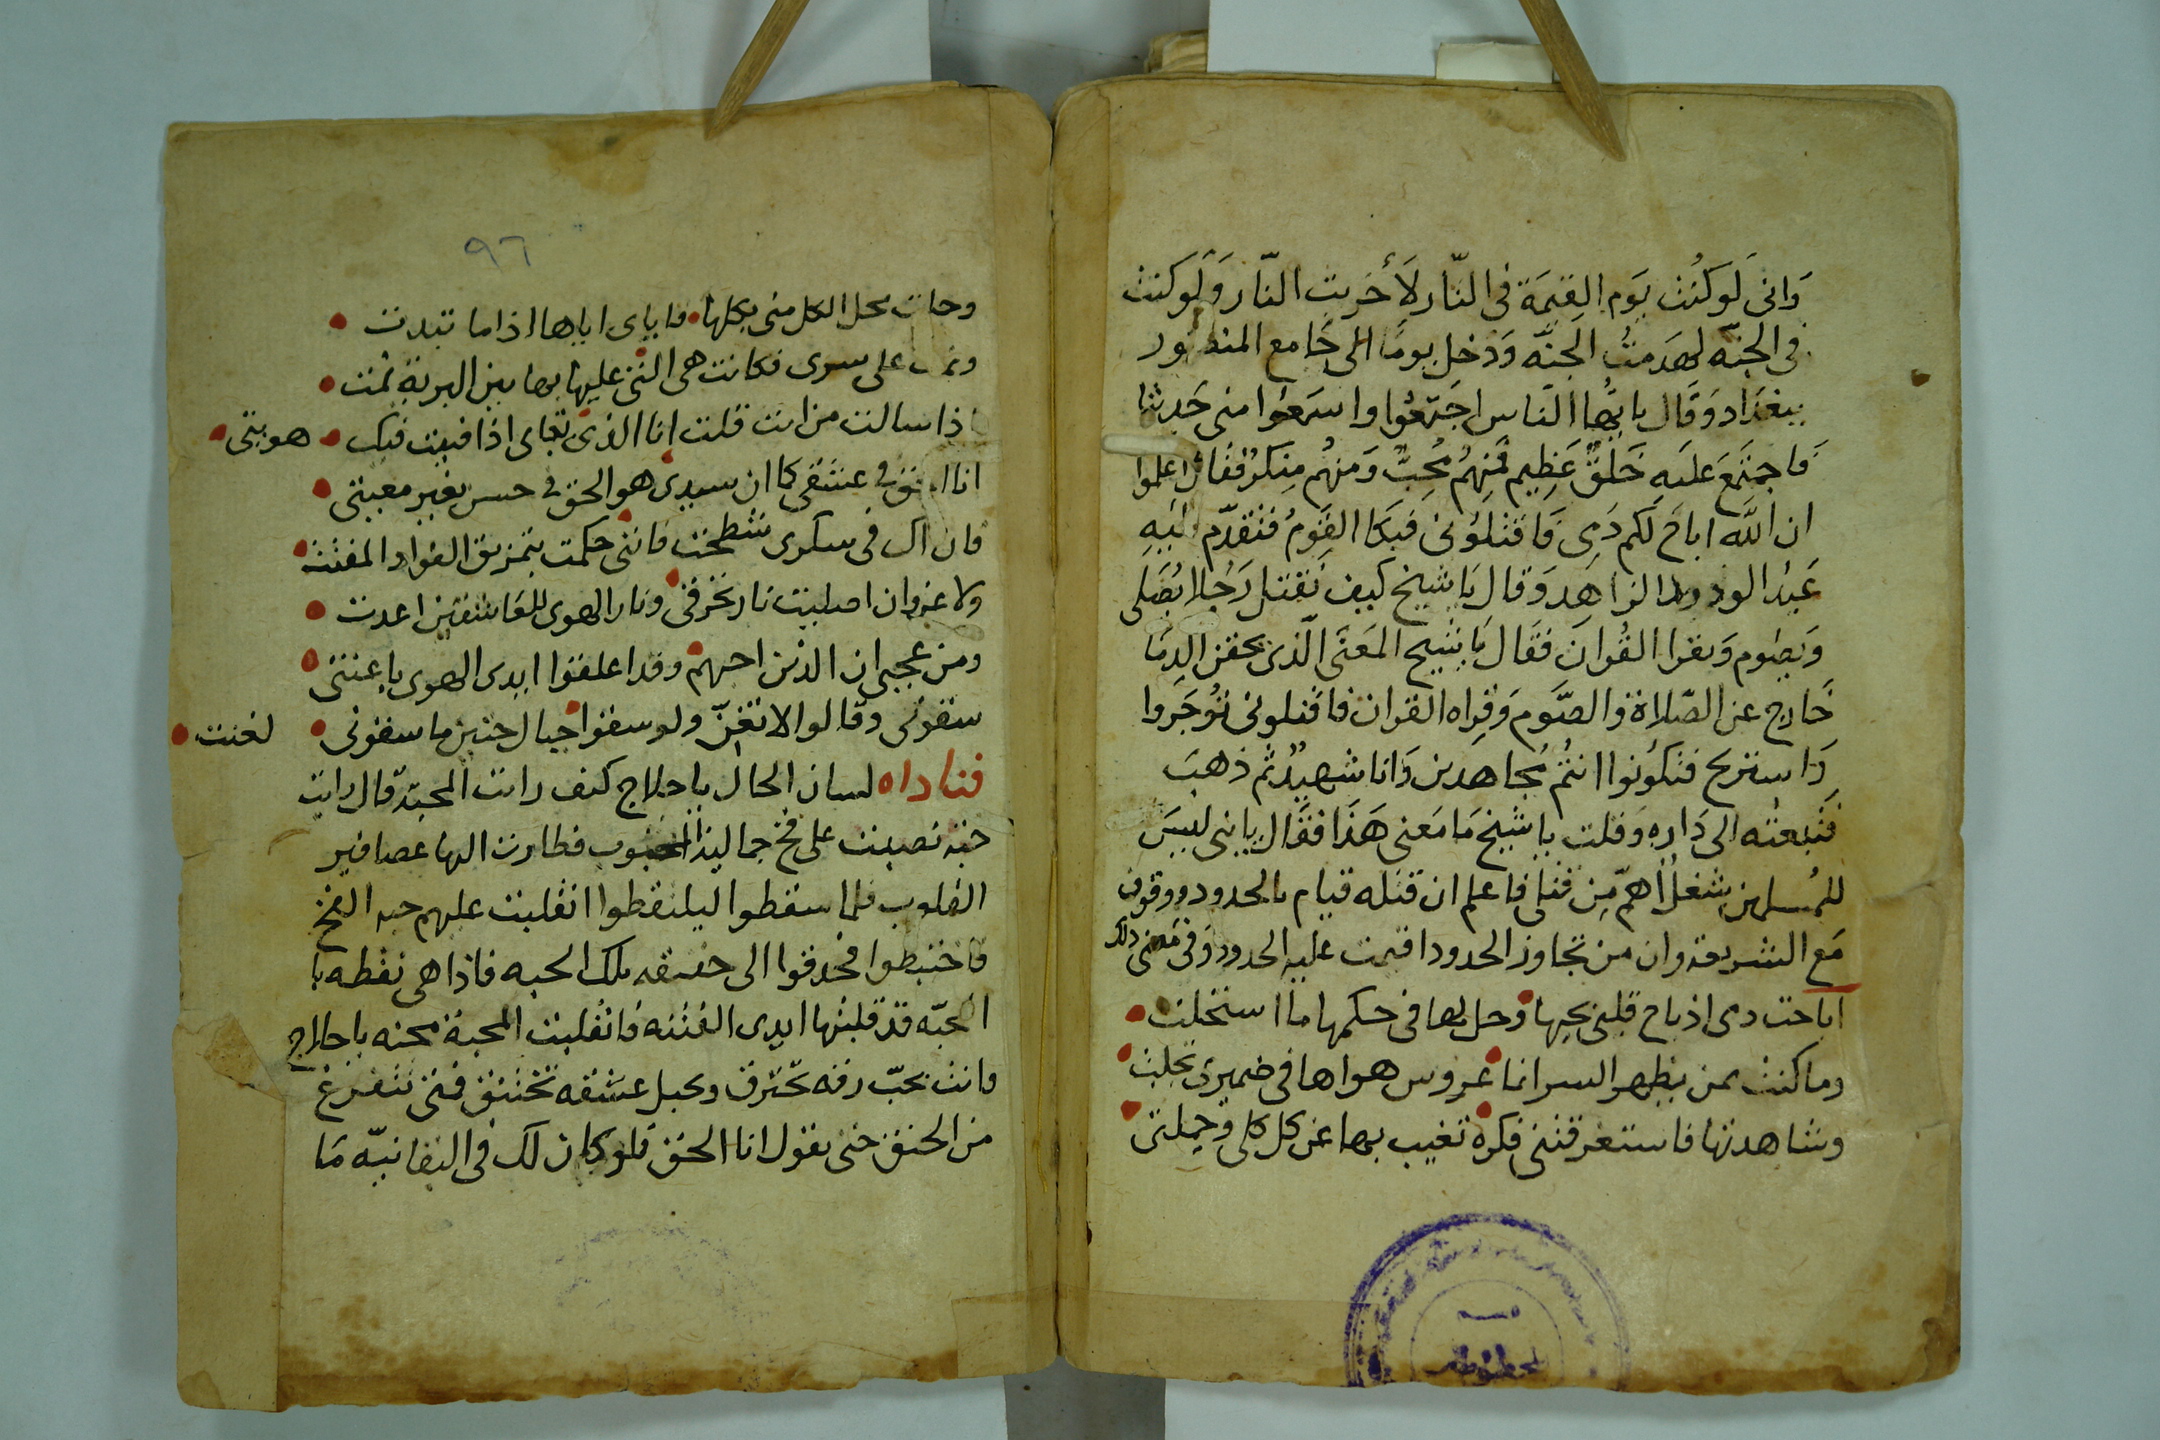 وَانى لَو كنُت يَوم القيمَة فى النّار لأَخربت النّار وَلَو كنت
فى الجنّه لهدَمتُ الجنّه وَدَخل يومًا الى جَامع المنصور
ببغدَاد وَقَال يا ايُّها النّاس اجتَمعُوا واسمَعُوا منى حَديثا
فَاجتمَع عليَهِ خَلقٌ عَظِيم فمنِهُم مُحِبٌّ وَمنهُم مِنكرٌ فقال اعلموا
ان اللَّه اباحَ لَكم دَمِى فَاقتلوُنى فبَكا القَومُ فتقدّم اليَهِ
عَبُد الودود الزاهِد وَقال يَا شيخ كيف نَقتل رَجُلا يُصَلى
وَيصُوم وَيقرا القُرانَ فقَال يَا شيخ المَعَنى الّذى يحقن الدِمَا
خَارج عن الصّلاة والصَّوم وَقِراه القران فاقتلونى تُوجَروا
وَاستريح فتكُونوا انتُم مُجاهدين وَانا شهيدٌ ثم ذهبَ
فَتَبعتُه الى دَاره وَقلت يا شيخ مَا مَعنى هَذَا فقَال يا بنى ليسَ
للمُسلمين شغلُ أهمّ مِن قتلى فاعلم ان قتله قيام بالحدود ووقوف
مَع الشريعة وان من تجاوز الحدود اقيمت عليه الحدود وَفى مَعنى ذلك
اباحت دمى اذ باح قلبى بحبها وحل لها فى حكمها ما استحلت
وما كنت ممن يظهر السر انما عروس هواها فى ضميرى تجلت
وشاهدتها فاستغرقتنى فكرة تغيب بها عن كل كلى وجملتى
٩٦
وحلت محل الكل منى بكلها فاياى اياها اذا ما تبدت
ونمت على سرى فكانت هى التى عليها بها بين البرية نمت
اذا سالت من انت قلت انا الذى بقاى اذا فنيت فيك هويتى
انا الحق فى عشقى كما ان سيدى هو الحق فى حسن بغير معيتى
فان اك فى سكرى شطحت فاننى حكمت بتمزيق الفواد المفتت
ولا غرو ان اصليت نار تحرقى ونار الهوى للعاشقين اعدت
ومن عجبى ان الذين احبهم وقد اعلقوا ايدى الهوى باعنتى
سقونى وقالوا لا تغن ولو سقوا جبال حنين ما سقونى لغنت
فناداه لسان الحال يا حلاج كيف رايت المحبّة قال رايت
حبه نصبت على فخ جماليذ المحبوب فطارت اليها عصافير
القلوب فلما سقطوا ليلتقطوا انقلبت عليهم حبه الفخ
فاختبطوا فحدقوا الى حقيقه تلك الحبه فاذا هى نقطه با
المحبّه قد قلبتها ايدى الفتنه فانقلبت المحبة محنه يا حلاج
وانت بحبّ رقه تحترف وبحبل عشقه تختنق فمتى تتفرغ
من الخنق حتى تقول انا الحق فلو كان لك فى البقا نيّه مَا
قسم
المخطوطات